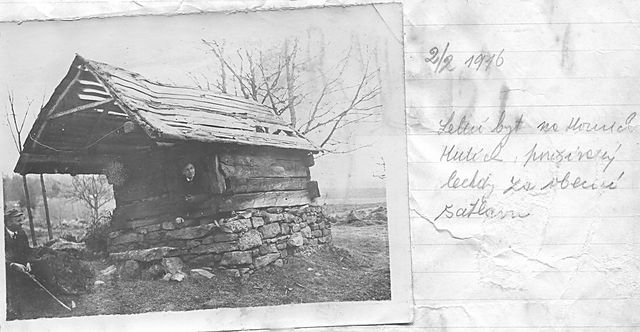 2/2 1916
Letní byt na Horních
Hutích, používaný
leckdy za obecní
šatlavu